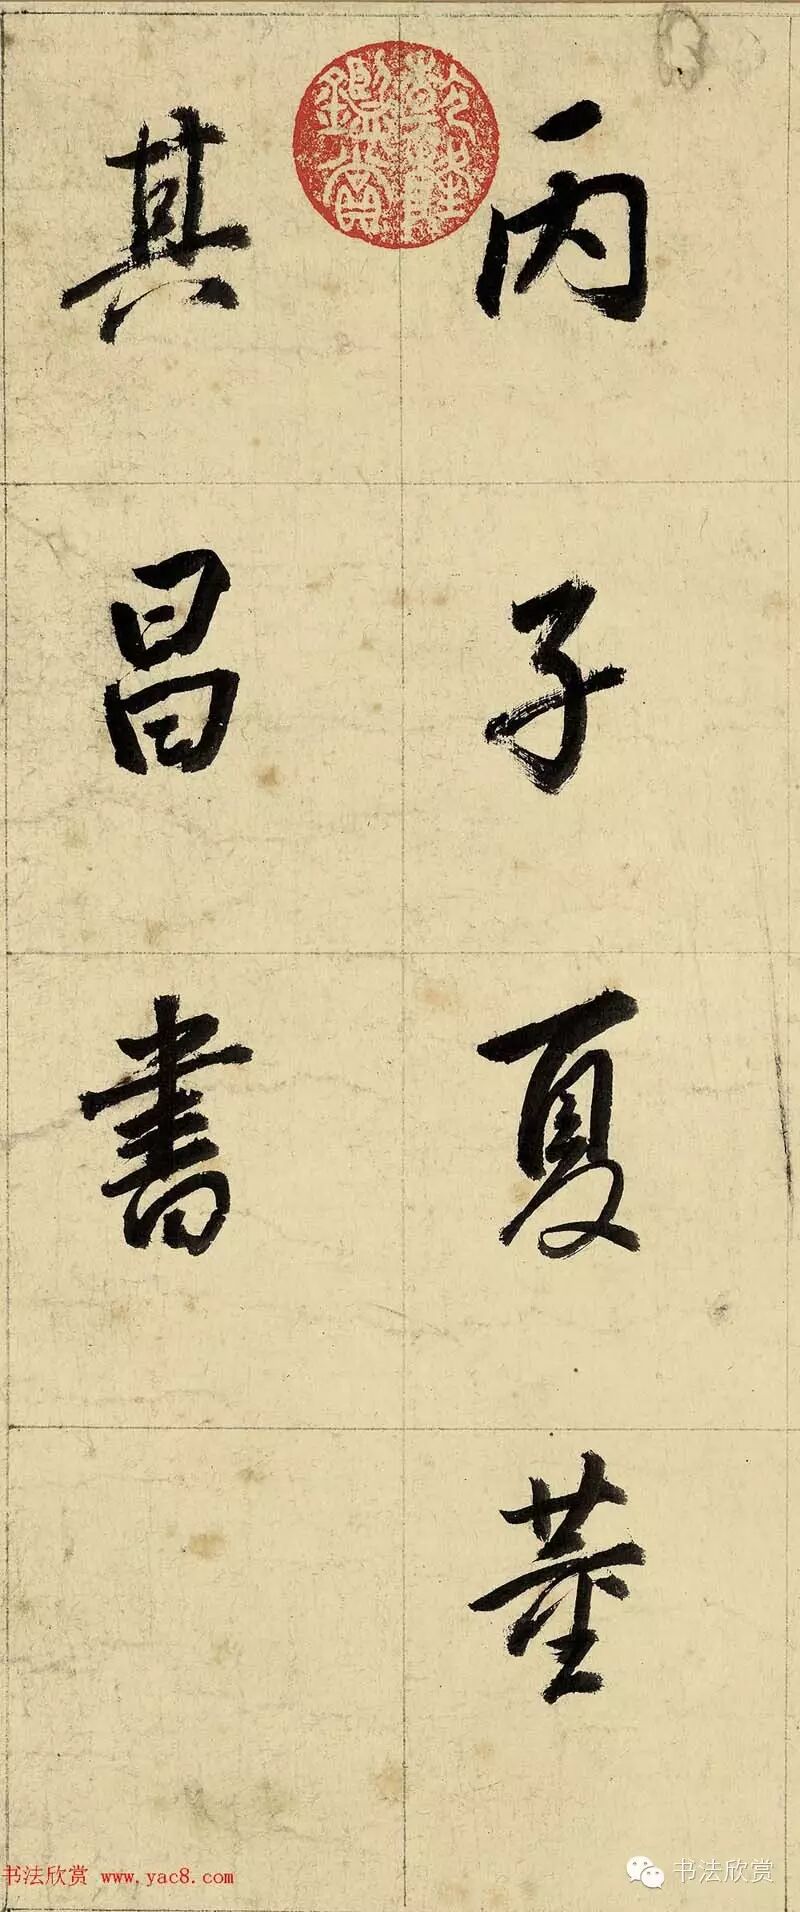 丙子夏董
其昌書
乾隆鑑賞
书法欣赏 www.yac8.com
书法欣赏